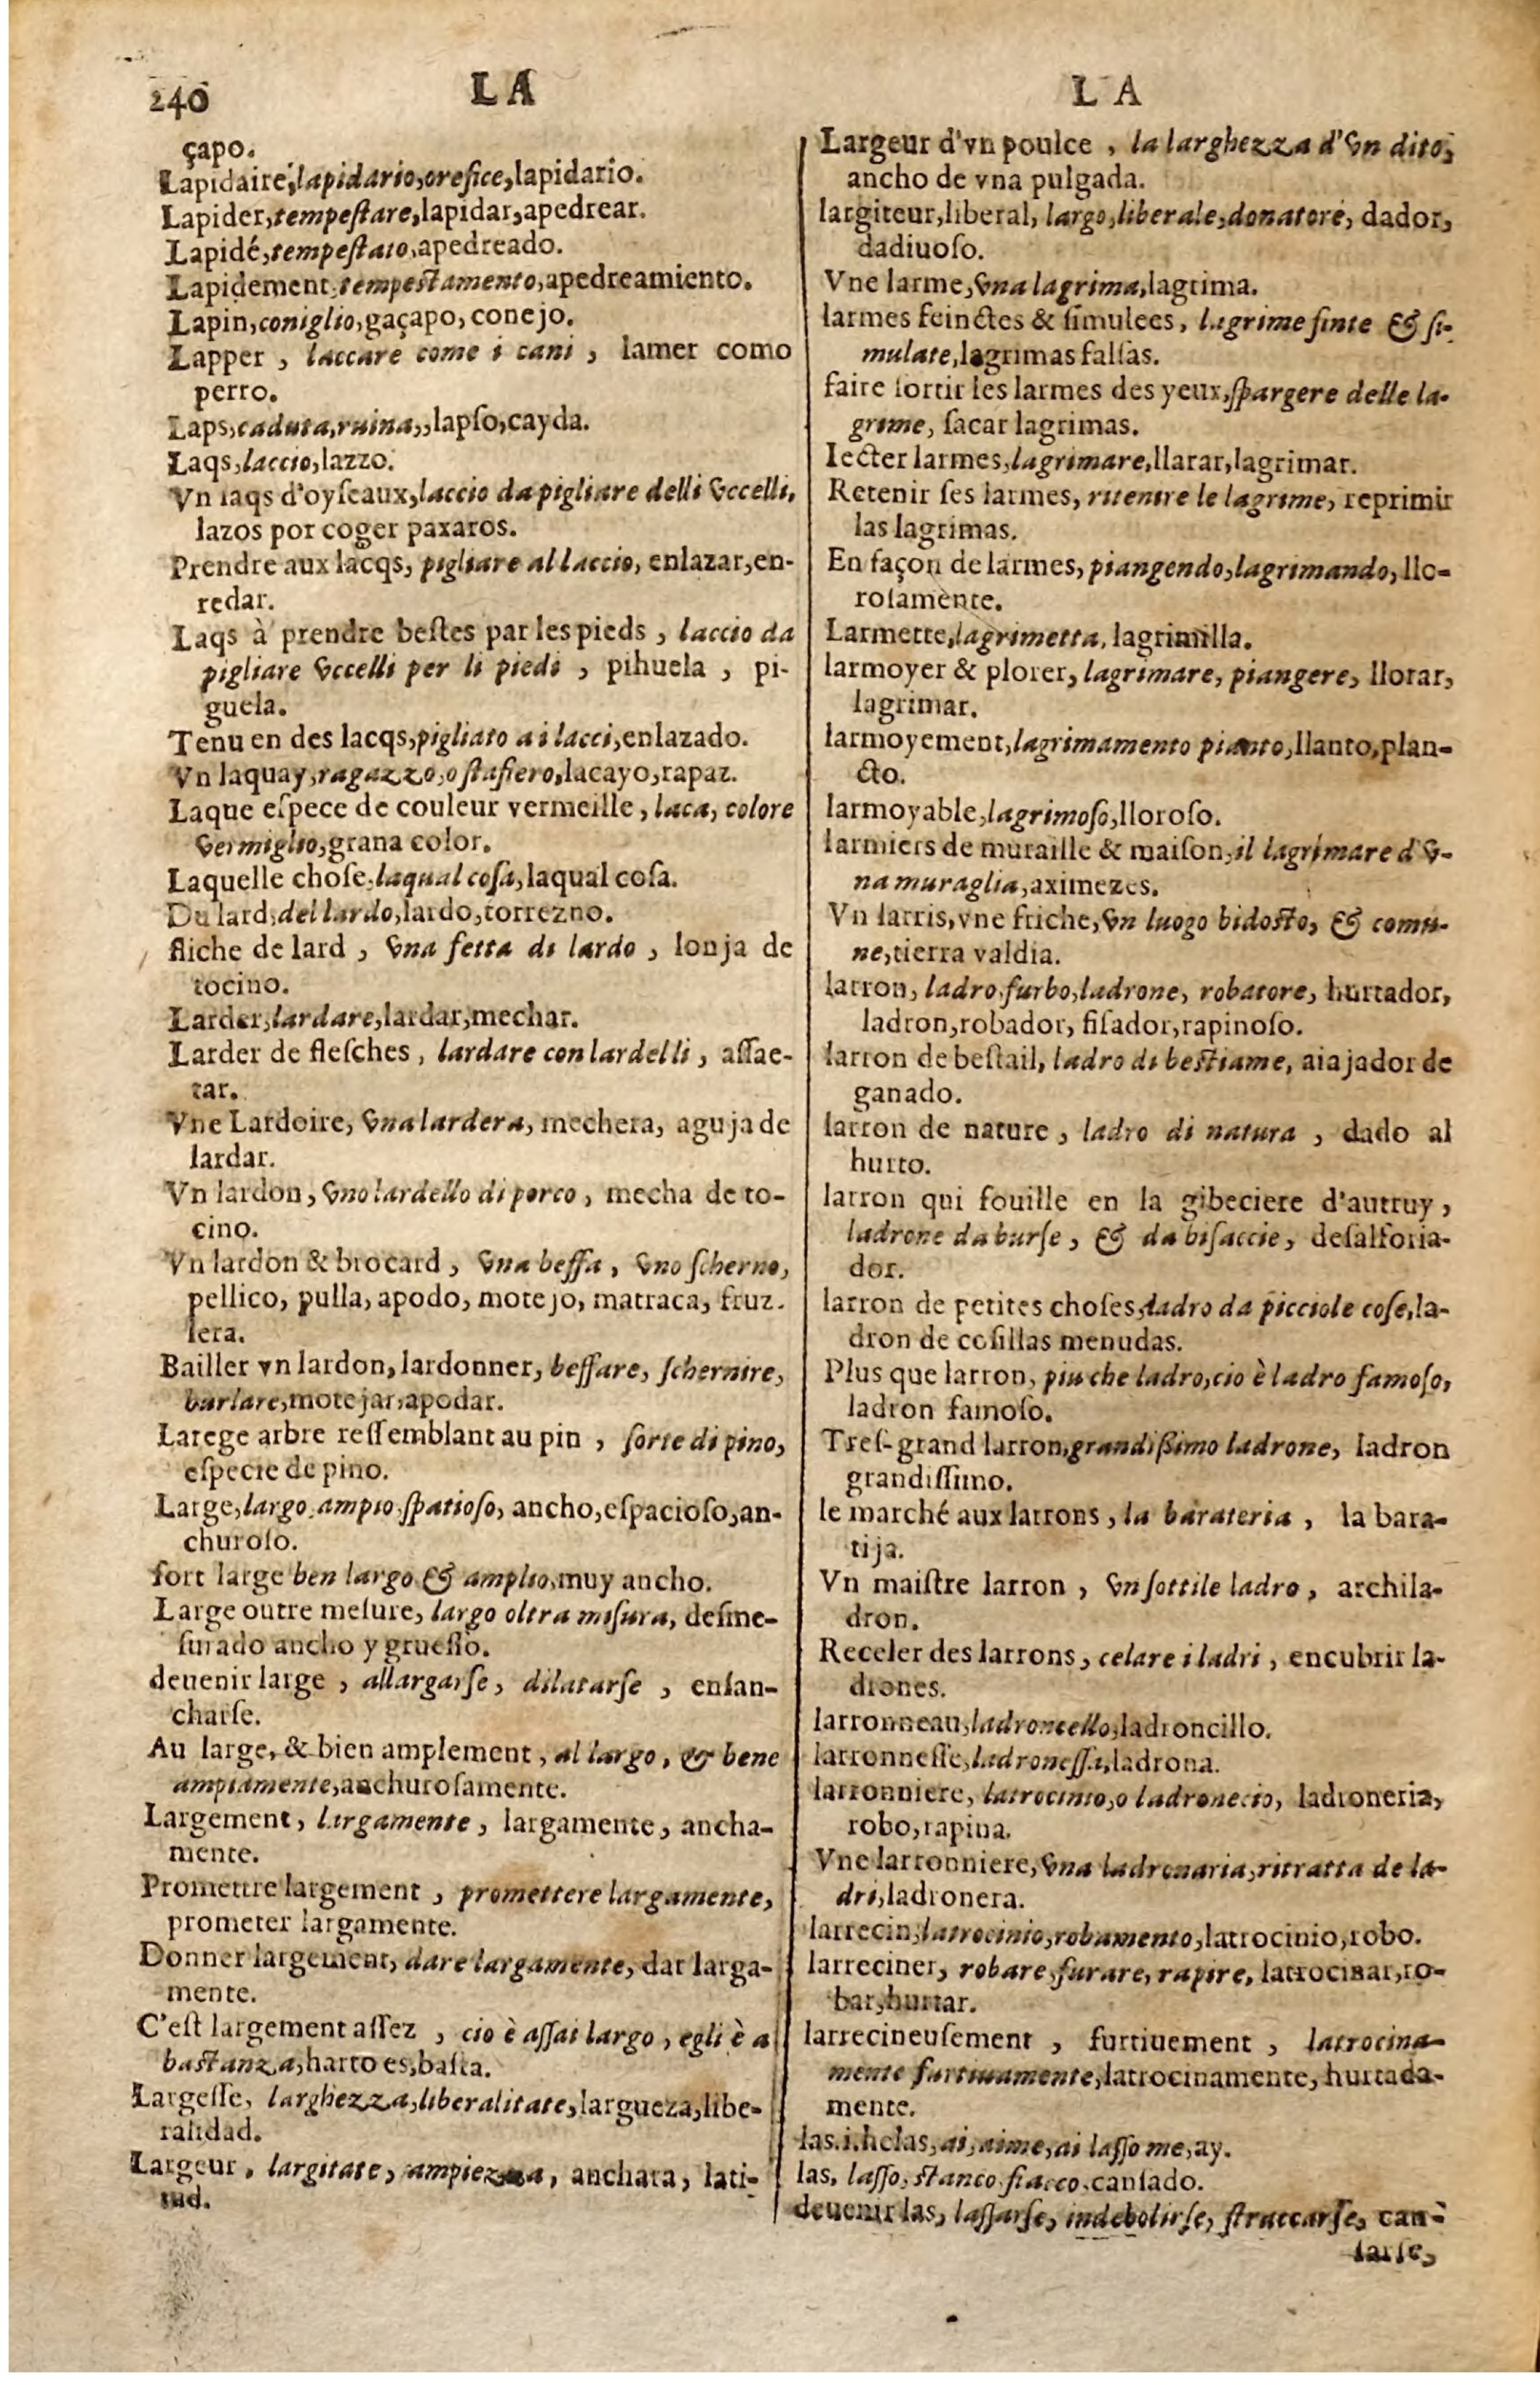 240 LA LA
çapo.
Lapidaire, lapidario, orefice, lapidario.
Lapider, tempeſtare, lapidar, apedrear.
Lapidé, tempeſtato, apedreado.
Lapidement, tempeſtamento, apedreamiento.
Lapin, coniglio, gaçapo, conejo.
Lapper , laccare come i cani , lamer como
perro.
Laps, caduta, ruina,, lapſo, cayda.
Laqs, laccio, lazzo.
Vn laqs d'oyſeaux, laccio da pigliare delli vccelli,
lazos por coger paxaros.
Prendre aux lacqs, pigliare al laccio, enlazar, en-
redar.
Laqs à prendre beſtes par les pieds , laccio da
pigliare vccelli per li piedi , pihuela , pi-
guela.
Tenu en des lacqs, pigliato a i lacci, enlazado.
Vn laquay, ragazzo, o ſtafiero, lacayo, rapaz.
Laque eſpece de couleur vermeille , laca, colore
vermiglio, grana color.
Laquelle choſe, laqual coſa, laqual coſa.
Du lard, del lardo, lardo, torrezno.
fliche de lard , vna fetta di lardo , lonja de
tocino.
Larder, lardare, lardar, mechar.
Larder de fleſches , lardare con lardelli , aſſae-
tar.
Vne Lardoire, vna lardera, mechera, aguja de
lardar.
Vn lardon, vno lardello di porco , mecha de to-
cino.
Vn lardon & brocard , vna beffa , vno ſcherno,
pellico, pulla, apodo, motejo, matraca, fruz-
lera.
Bailler vn lardon, lardonner, beffare, ſchernire,
burlare, motejar, apodar.
Larege arbre reſſemblant au pin , ſorte di pino,
eſpecie de pino.
Large, largo, ampio, ſpatioſo, ancho, eſpacioſo, an-
churoſo.
fort large ben largo & amplio, muy ancho.
Large outre meſure, largo oltra miſura, deſme-
ſurado ancho y grueſſo.
deuenir large , allargarſe, dilatarſe , enſan-
charſe.
Au large, & bien amplement , al largo, & bene
ampiamente, anchuroſamente.
Largement, largamente , largamente , ancha-
mente.
Promettre largement , promettere largamente,
prometer largamente.
Donner largement, dare largamente, dar larga-
mente.
C'eſt largement aſſez , cio è aſſai largo , egli è a
baſtanza, harto es, baſta.
Largeſſe, larghezza, liberalitate, largueza, libe-
ralidad.
Largeur, largitate, ampiezza, anchara, lati-
tud.
Largeur d'vn poulce , la larghezza d'vn dito,
ancho de vna pulgada.
largiteur, liberal, largo, liberale, donatore, dador,
dadiuoſo.
Vne larme, vna lagrima, lagrima.
larmes feinctes & ſimulees, lagrime finte & ſi-
mulate, lagrimas falſas.
faire ſortir les larmes des yeux, ſpargere delle la-
grime, ſacar lagrimas.
Iecter larmes, lagrimare, llarar, lagrimar.
Retenir ſes larmes, ritenire le lagrime, reprimir
las lagrimas.
En façon de larmes, piangendo, lagrimando, llo-
roſamente.
Larmette, lagrimetta, lagrimilla.
larmoyer & plorer, lagrimare, piangere, llorar,
lagrimar.
larmoyement, lagrimamento pianto, llanto, plan-
cto.
larmoyable, lagrimoſo, lloroſo.
larmiers de muraille & maiſon, il lagrimare d'v-
na muraglia, aximezes.
Vn larris, vne friche, vn luogo bidoſto, & comu-
ne, tierra valdia.
larron, ladro, furbo, ladrone, robatore, hurtador,
ladron, robador, fiſador, rapinoſo.
larron de beſtail, ladro di beſtiame, aiajador de
ganado.
larron de nature , ladro di natura , dado al
hurto.
larron qui fouille en la gibeciere d'autruy ,
ladrone da burſe , & da biſaccie, deſalforia-
dor.
larron de petites choſes, ladro da picciole coſe, la-
dron de coſillas menudas.
Plus que larron, piu che ladro, cio è ladro famoſo,
ladron famoſo.
Treſ-grand larron, grandißimo ladrone, ladron
grandiſſimo.
le marché aux larrons , la barateria , la bara-
tija.
Vn maiſtre larron , vn ſottile ladro , archila-
dron.
Receler des larrons , celare i ladri , encubrir la-
drones.
larronneau, ladroncello, ladroncillo.
larronneſſe, ladroneſſa, ladrona.
larronniere, latrocinio, o ladronecio, ladroneria,
robo, rapina.
Vne larronniere, vna ladronaria, ritratta de la-
dri, ladronera.
larrecin, latrocinio, robamento, latrocinio, robo.
larreciner, robare, furare, rapire, latrocinar, ro-
bar, hurtar.
larrecineuſement , furtiuement , latrocina-
mente furtiuamente, latrocinamente, hurtada-
mente.
las. i. helas, ai, aime, ai laſſo me, ay.
las, laſſo, ſtanco, fiacco, canſado.
deuenir las, laſſarſe, indebolirſe, ſtraccarſe, can-
ſarſe,